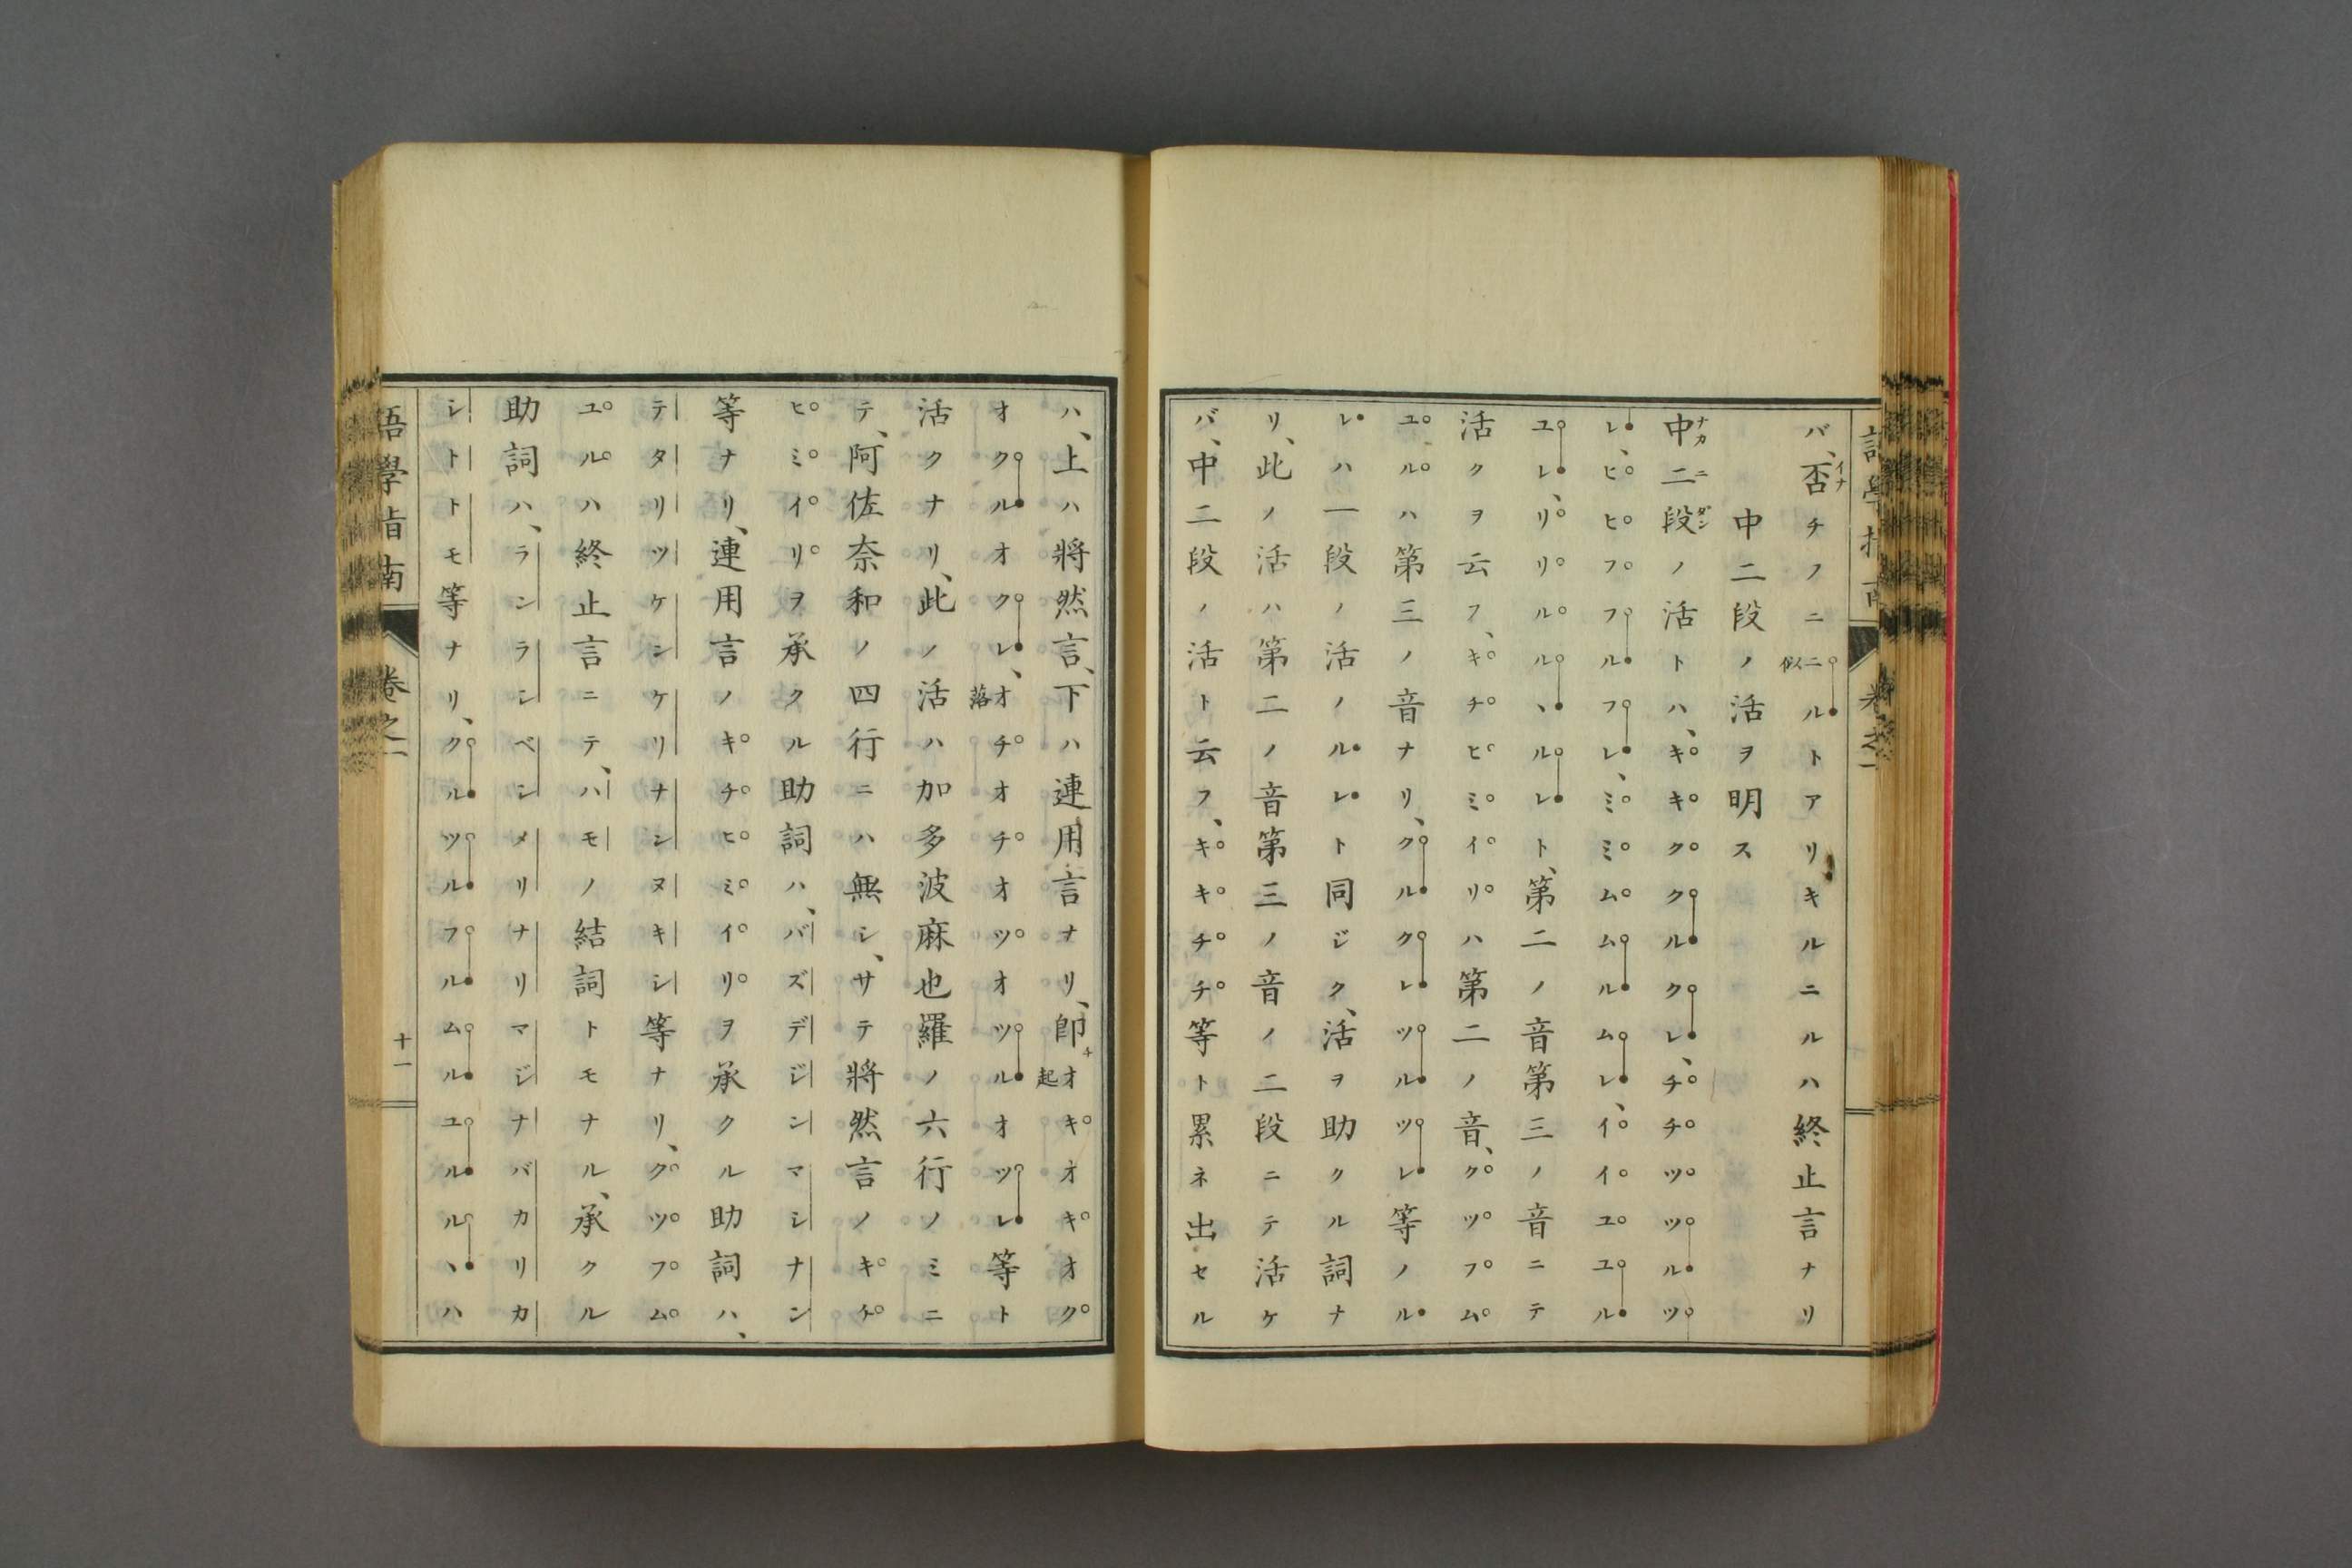 バ、否チノニ似ニルトアリ、キルニルハ終止言ナリ
中二段ノ活ヲ明ス
中二段ノ活トハ、キキククルクレ、チチツツルツ
レ、ヒヒフフルフレ、ミミムムルムレ、イイユユル
ユレ、リリルルヽルレト、第二ノ音第三ノ音ニテ
活クヲ云フ、キチヒミイリハ第二ノ音、クツフム
ユルハ第三ノ音ナリ、クルクレツルツレ等ノル
レハ一段ノ活ノルレト同ジク、活ヲ助クル詞ナ
リ、此ノ活ハ第二ノ音第三ノ音ノ二段ニテ活ケ
バ、中二段ノ活ト云フ、キキチチ等ト累ネ出セル
ハ、上ハ將然言、下ハ連用言ナリ、卽チ起オキオキオク
オクルオクレ、落オチオチオツオツルオツレ等ト
活クナリ、此ノ活ハ加多波麻也羅ノ六行ノミニ
テ、阿佐奈和ノ四行ニハ無シ、サテ將然言ノキチ
ヒミイリヲ承クル助詞ハ、バズデジンマシナン
等ナリ、連用言ノキチヒミイリヲ承クル助詞ハ、
テタリツケンケリナンヌキシ等ナリ、クツフム
ユルハ終止言ニテ、ハモノ結詞トモナル、承クル
助詞ハ、ランランベシメリナリマジナバカリカ
シトトモ等ナリ、クルツルフルムルユルルヽハ
語學指南
卷之一
十一